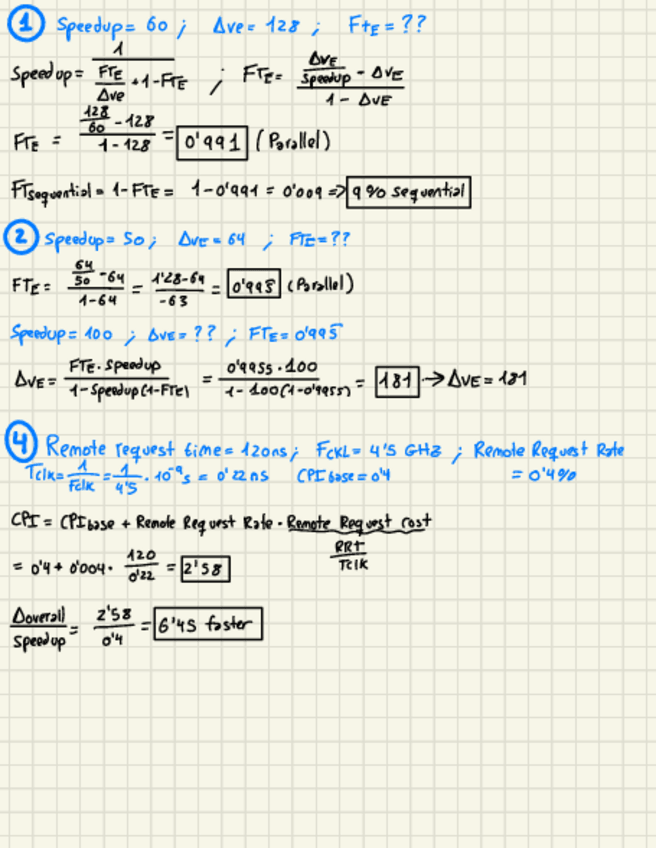 ① Speedup = 60 ; Δve = 128 ; FtE = ??
Speedup = 1 / (FTE / Δve + 1 - FTE) ; FTE = (ΔVE / Speedup - ΔVE) / (1 - ΔVE)
FTE = (128 / 60 - 128) / (1 - 128) = 0'991 (Parallel)
FTsequential = 1 - FTE = 1 - 0'991 = 0'009 => 9 % sequential
② Speedup = 50 ; ΔVE = 64 ; FTE = ??
FTE = (64 / 50 - 64) / (1 - 64) = (1'28 - 64) / (-63) = 0'995 (Parallel)
Speedup = 100 ; ΔVE = ?? ; FTE = 0'995
ΔVE = (FTE · Speedup) / (1 - Speedup (1 - FTE)) = (0'9955 · 100) / (1 - 100 (1 - 0'9955)) = 181 → ΔVE = 181
④ Remote request time = 120ns ; FCKL = 4'5 GHz ; Remote Request Rate
Tclk = 1 / Fclk = 1 / 4'5 · 10⁻⁹ s = 0'22 ns CPI base = 0'4 = 0'4%
CPI = CPI base + Remote Request Rate · Remote Request cost
RRt / Tclk
= 0'4 + 0'004 · 120 / 0'22 = 2'58
Δoverall / Speedup = 2'58 / 0'4 = 6'45 faster